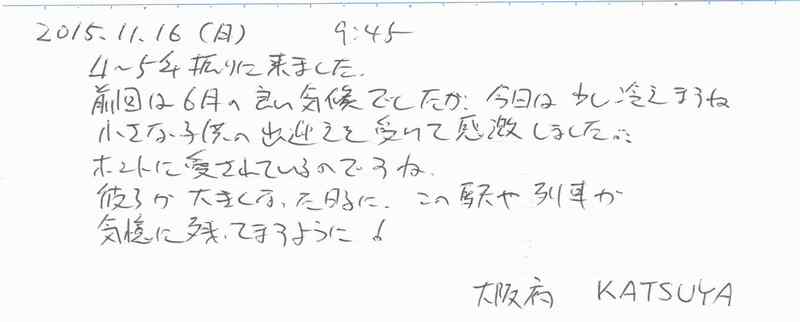 2015.11.16 (月) 9:45
4〜5年振りに来ました.
前回は6月の良い気候でしたが、今日は少し冷えますね
小さな子供の出迎えを受けて感激しました…
ホントに愛されているのですね.
彼らが大きくなった時に、この駅や列車が
気憶に残ってますように!
大阪府 KATSUYA